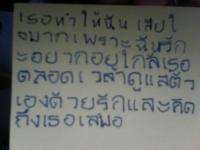 เธอทำให้ฉัน เสียใ
จมากเพราะฉันรัก
ะอยากอยู่ใกล้เธอ
ตลอดเวลาดูแลตัว
เองด้วยรักและคิด
ถึงเธอเสมอ